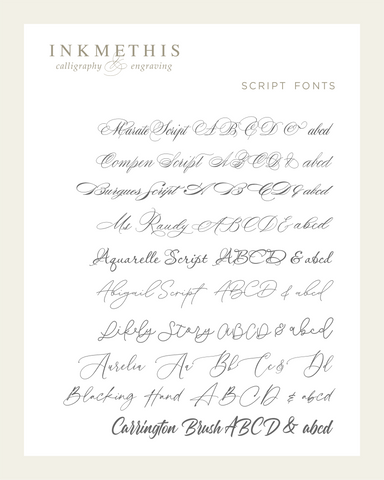 INKMETHIS
calligraphy & engraving
SCRIPT FONTS
Murate Script A B C D & abcd
Compen Script A B C D & abcd
Burgues Script A B C D & abcd
Ms Raudy A B C D & abcd
Aquarelle Script ABCD & abcd
Abigail Script ABCD & abcd
Likely Story ABCD & abcd
Aurelia Aa Bb Cc & Dd
Blacking Hand A B C D & abcd
Carrington Brush ABCD & abcd